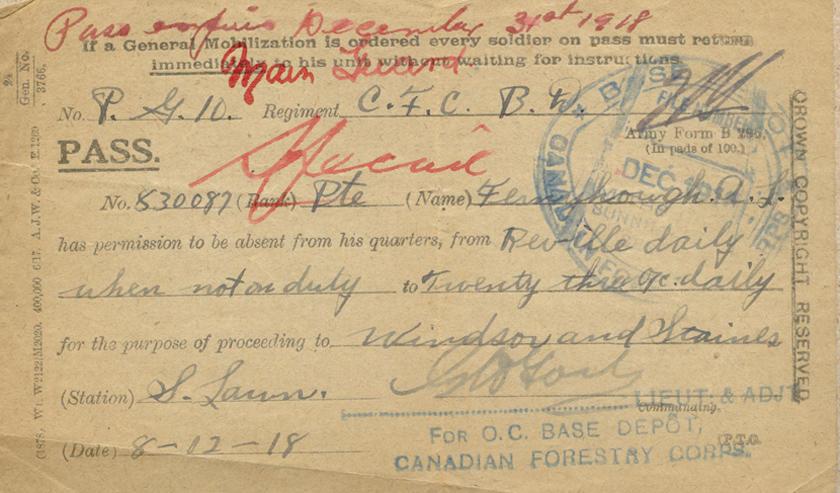 Pass expires December 31st 1918
If a General Mobilization is ordered every soldier on pass must return
immediately to his unit without waiting for instructions.
Main Guard
No. P. G. 10. Regiment C. F. C. B. D.
Army Form B 295.
(In pads of 100.)
PASS.
Special
No. 830087 (Rank) Pte (Name) Fernyhough. A. L.
has permission to be absent from his quarters, from Reville daily
when not on duty to Twenty three o/c. daily
for the purpose of proceeding to Windsor and Staines
(Station) S. Lawn.
LIEUT. & ADJT
Commanding.
(Date) 8-12-18
FOR O.C. BASE DEPOT,
P.T.O.
CANADIAN FORESTRY CORPS.
BASE DEPOT
FILE NUMBER
DEC
SUNN
CANADIAN FO
24
Gen. No.
3766.
(1878. Wt. W2122/M2020. 400,000 6/17. A.J.W. & Co. E.1220
CROWN COPYRIGHT RESERVED